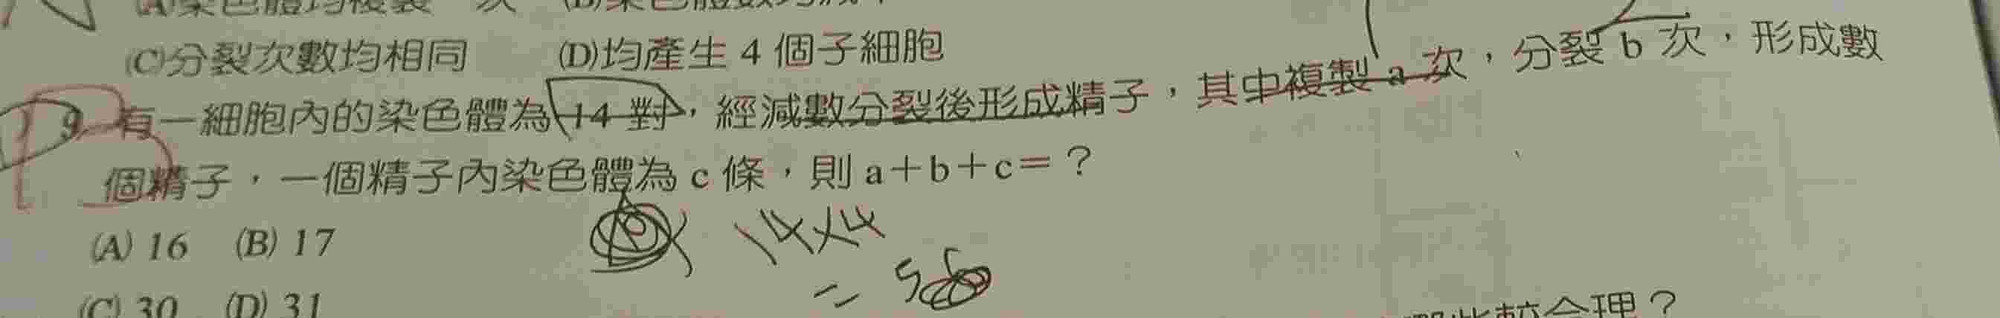 (A)染色體均複製一次 (B)染色體數均減
(C)分裂次數均相同 (D)均產生 4 個子細胞
9. 有一細胞內的染色體為 14 對,經減數分裂後形成精子,其中複製 a 次,分裂 b 次,形成數
個精子,一個精子內染色體為 c 條,則 a+b+c=?
(A) 16 (B) 17
14×4
= 56
(C) 30 (D) 31
較合理?